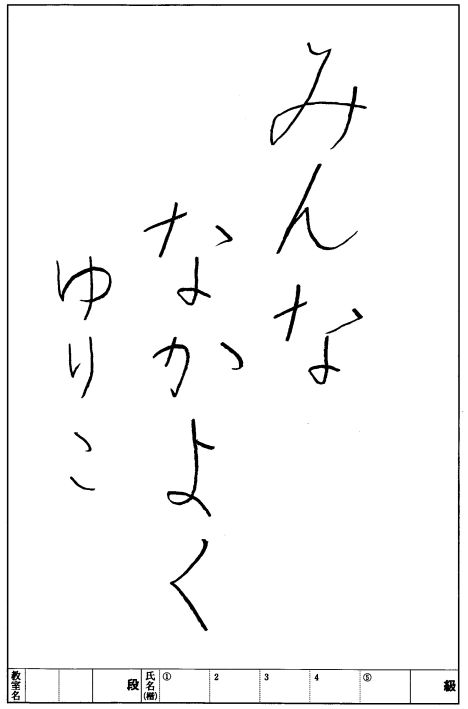 みんな
なかよく
ゆりこ
教室名 段 氏名(櫛) ① 2 3 4 ⑤ 級